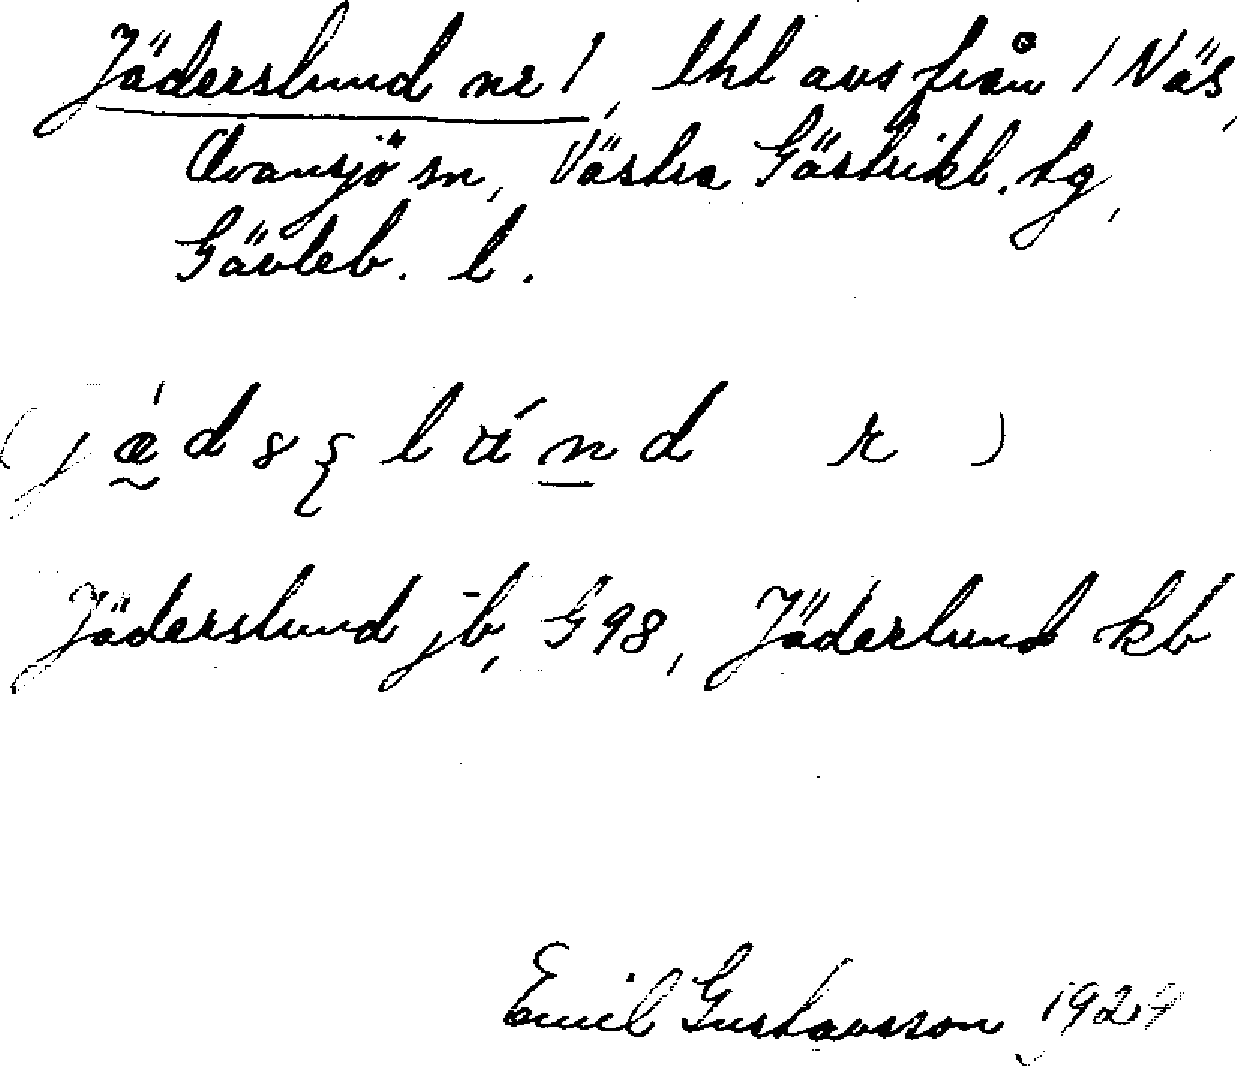 Jäderslund nr 1, lht avs från 1 Näs,
Ovansjö sn, Västra Gästrikl. tg,
Gävleb. l.
Jäderslund jb, G 98, Jäderlund kb
Emil Gustavsson 1924